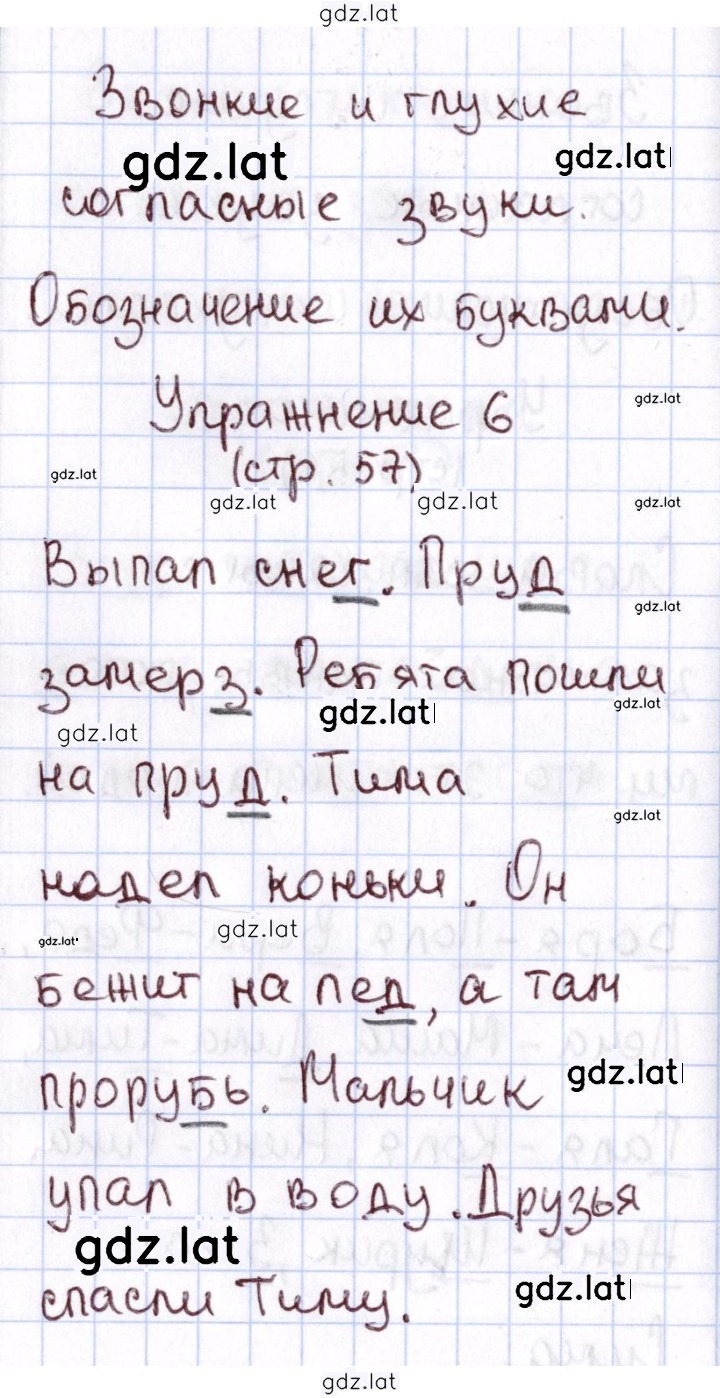 gdz.lat
Звонкие и глухие
gdz.lat gdz.lat
согласные звуки.
Обозначение их буквами.
Упражнение 6
gdz.lat
(стр. 57)
gdz.lat
gdz.lat gdz.lat gdz.lat
Выпал снег. Пруд
gdz.lat
замерз. Ребята пошли
gdz.lat gdz.lat
gdz.lat
на пруд. Тима
gdz.lat
надел коньки. Он
gdz.lat gdz.lat
бежит на лед, а там
gdz.lat
прорубь. Мальчик
упал в воду. Друзья
gdz.lat
gdz.lat
спасли Тиму.
gdz.lat